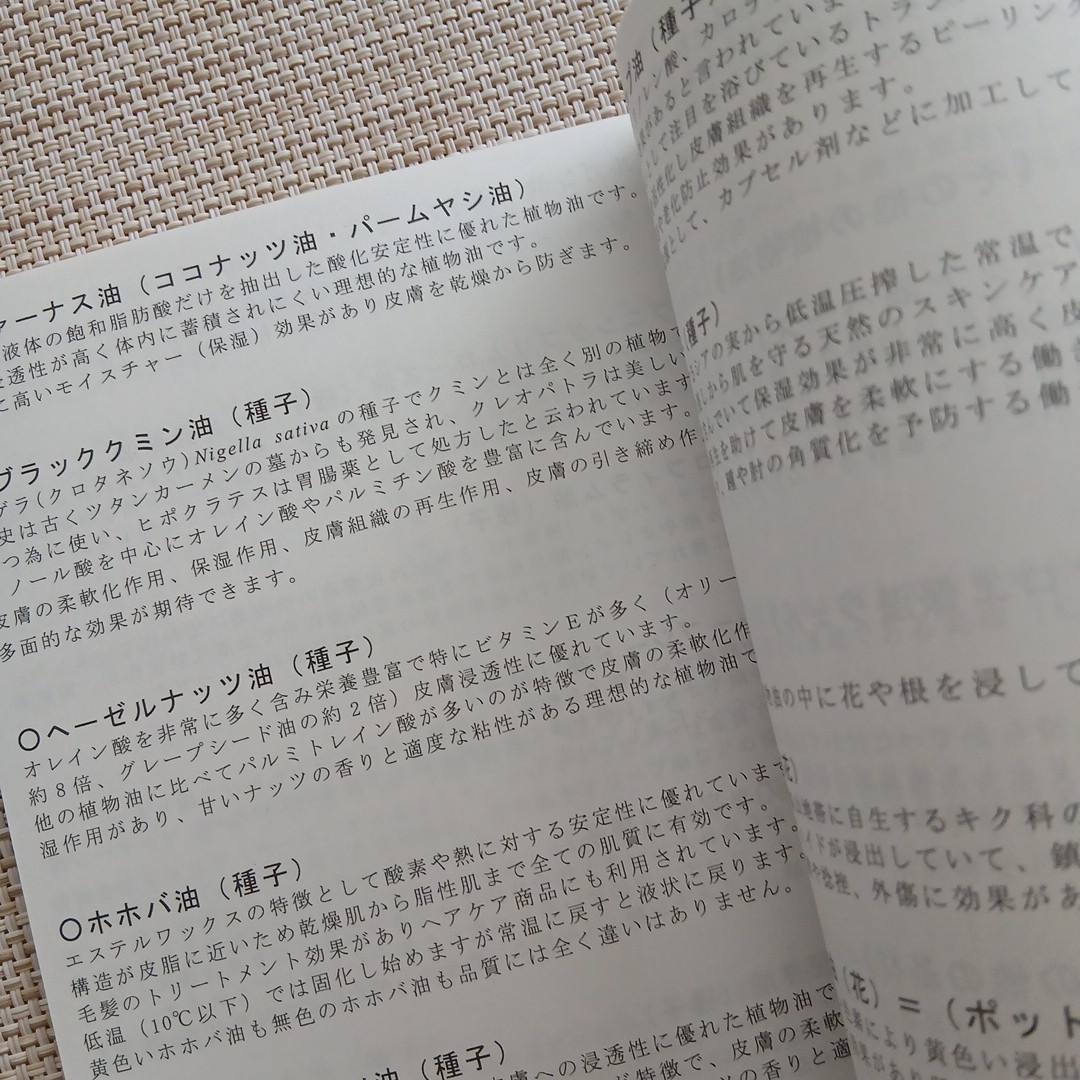 ァーナス油（ココナッツ油・パームヤシ油）
液体の飽和脂肪酸だけを抽出した酸化安定性に優れた植物油です。
浸透性が高く体内に蓄積されにくい理想的な植物油です。
に高いモイスチャー（保湿）効果があり皮膚を乾燥から防ぎます。
ブラッククミン油（種子）
ゲラ(クロタネソウ)Nigella sativaの種子でクミンとは全く別の植物で
史は古くツタンカーメンの墓からも発見され、クレオパトラは美しい
つ為に使い、ヒポクラテスは胃腸薬として処方したと云われています
ノール酸を中心にオレイン酸やパルミチン酸を豊富に含んでいます。
皮膚の柔軟化作用、保湿作用、皮膚組織の再生作用、皮膚の引き締め作
多面的な効果が期待できます。
〇ヘーゼルナッツ油（種子）
オレイン酸を非常に多く含み栄養豊富で特にビタミンEが多く（オリー
約8倍、グレープシード油の約2倍）皮膚浸透性に優れています。
他の植物油に比べてパルミトレイン酸が多いのが特徴で皮膚の柔軟化作
湿作用があり、甘いナッツの香りと適度な粘性がある理想的な植物油で
〇ホホバ油（種子）
エステルワックスの特徴として酸素や熱に対する安定性に優れていまて
構造が皮脂に近いため乾燥肌から脂性肌まで全ての肌質に有効です。
毛髪のトリートメント効果がありヘアケア商品にも利用されています。
低温（10℃以下）では固化し始めますが常温に戻すと液状に戻ります。
黄色いホホバ油も無色のホホバ油も品質には全く違いはありません。
油（種子）
皮膚への浸透性に優れた植物油で
が特徴で、皮膚の柔軟
の香りと適
油（種子
レン酸、カロ
があると言われていま
して注目を浴びているトラン
活性化し皮膚組織を再生するピーリング
や老化防止効果があります。
として、カプセル剤などに加工して
種子）
シアの実から低温圧搾した常温で
しから肌を守る天然のスキンケア
んでいて保湿効果が非常に高く皮
生を助けて皮膚を柔軟にする働き
踵や肘の角質化を予防する働
油の中に花や根を浸して
花）
地帯に自生するキク科の
イドが浸出していて、鎮
捻挫、外傷に効果があ
（花）＝（ポット
により黄色い浸出